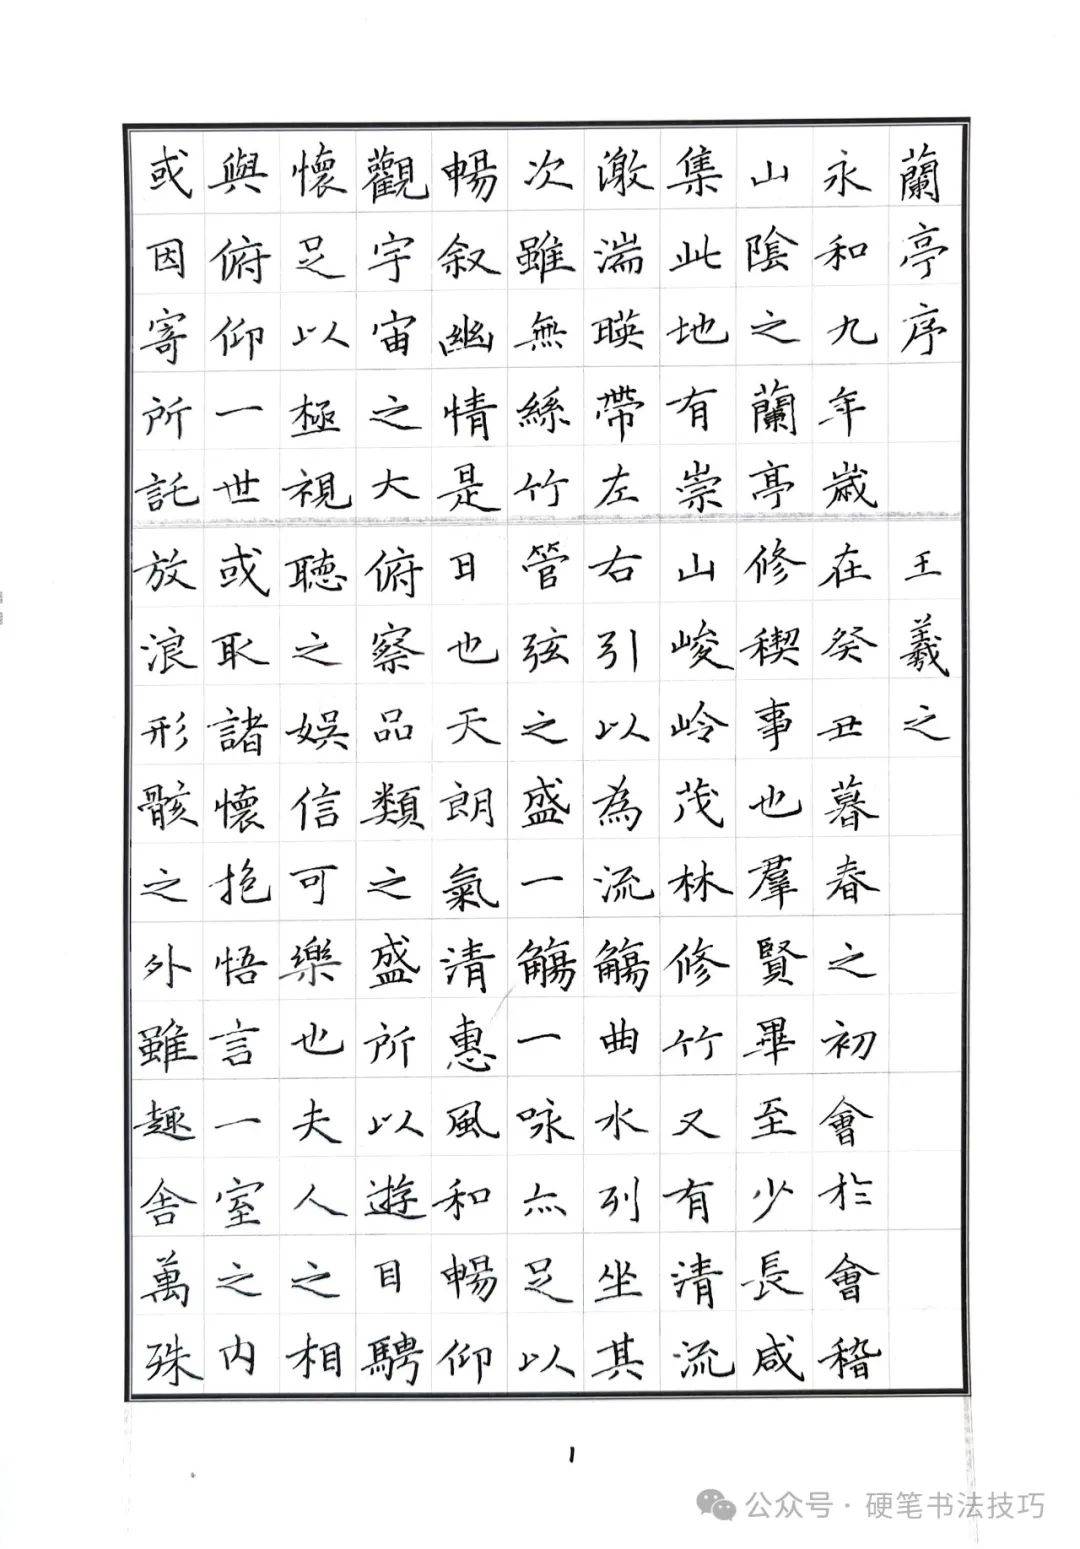 蘭亭序 王羲之
永和九年歲在癸丑暮春之初會於會稽
山陰之蘭亭修稧事也羣賢畢至少長咸
集此地有崇山峻岭茂林修竹又有清流
激湍暎帶左右引以為流觴曲水列坐其
次雖無絲竹管弦之盛一觴一咏亦足以
暢叙幽情是日也天朗氣清惠風和暢仰
觀宇宙之大俯察品類之盛所以遊目騁
懷足以極視聽之娛信可樂也夫人之相
與俯仰一世或取諸懷抱悟言一室之内
或因寄所託放浪形骸之外雖趣舍萬殊
1
公众号·硬笔书法技巧